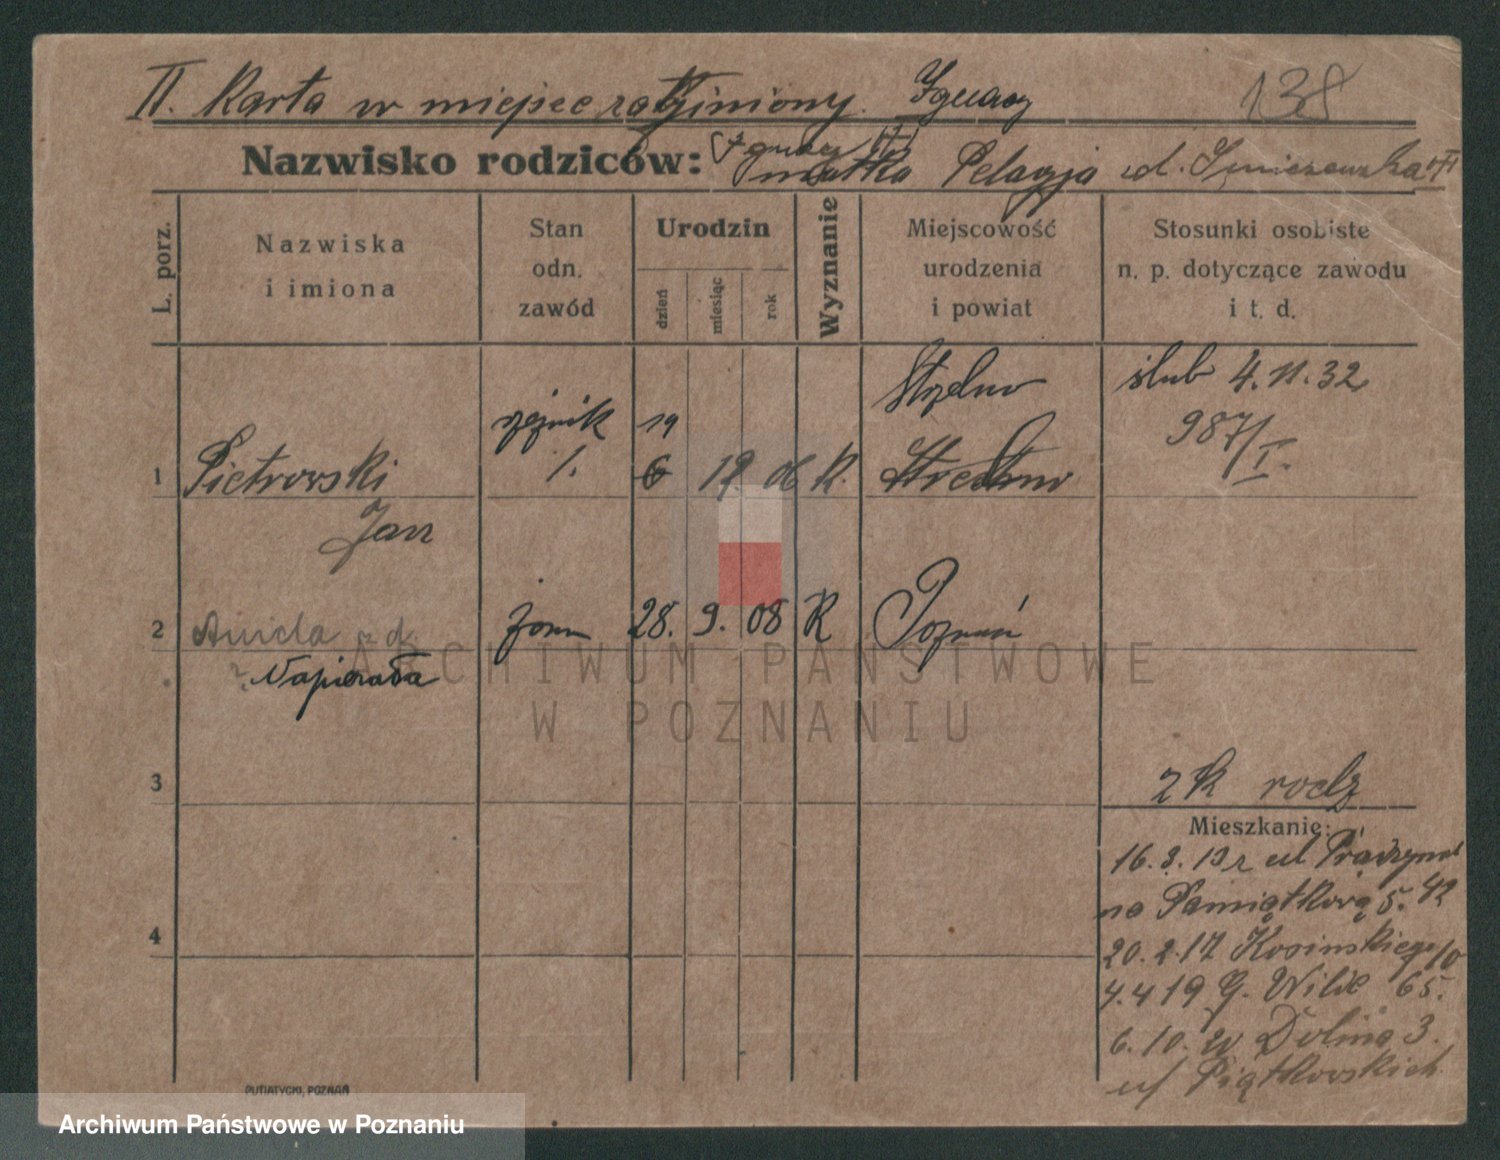 II. Karta w miejsce zaginiony. Ignacy
138
Nazwisko rodziców: (Ignacy
matka Pelagja zd.
L. porz.
Nazwiska
i imiona
Stan
odn.
zawód
Urodzin
dzień
miesiąc
rok
Wyznanie
Miejscowość
urodzenia
i powiat
Stosunki osobiste
n. p. dotyczące zawodu
i t. d.
Strzelno
ślub 4.11.32
rzeźnik 19
987/I.
1 Pietrowski 1. 6 12. 06 R.
Jan
2 Aniela zd. żona 28. 9. 08 R Poznań
Napierała
3
2 K rodz
Mieszkanie:
16.3.13 r ul
na Pamiątkową 5. 42
4
20.2.17 Kosinskiego 10
4.4 19 G. Wilde 65.
6.10. Dolina 3.
ul Piątkowskich
PUTIATYCKI, POZNAŃ
ARCHIWUM PAŃSTWOWE
W POZNANIU
Archiwum Państwowe w Poznaniu